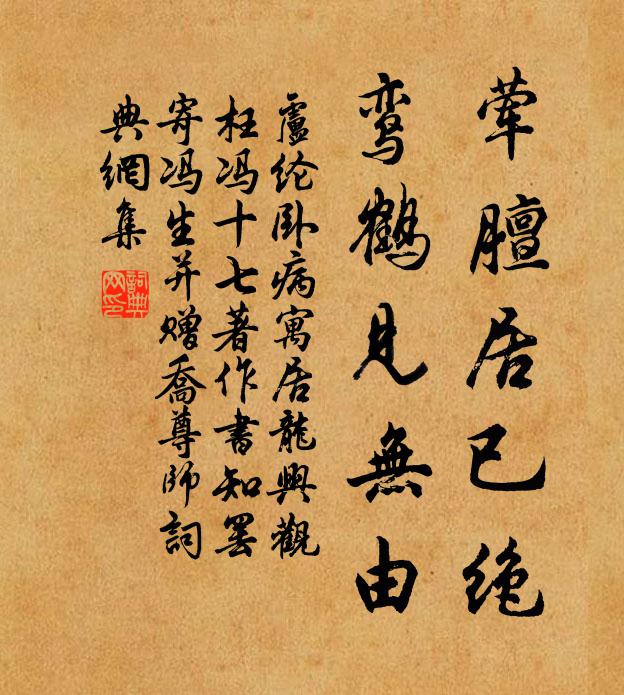 荤膻居已绝
鸾鹤见無由
盧纶卧病寓居龍興觀
枉冯十七著作書知罢
寄冯生并赠喬尊師詞
典網集
詞典
网印